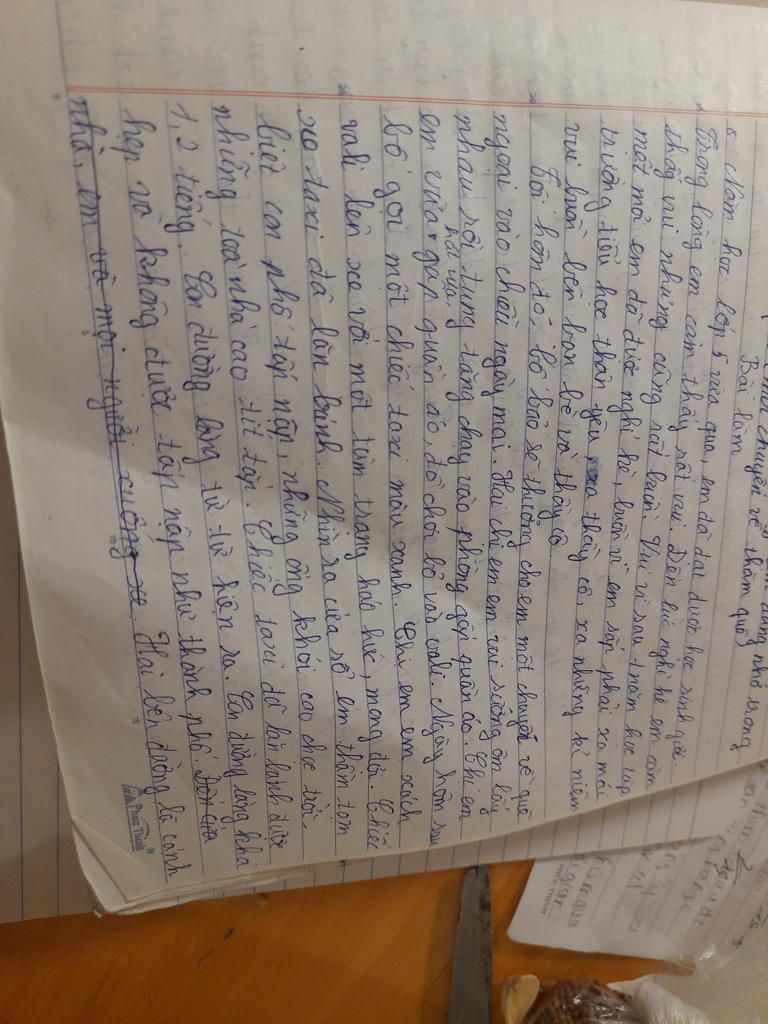 chuyến về thăm quê)
Bài làm
Năm học lớp 5 vừa qua, em đã đạt được học sinh giỏi.
Trong lòng em cảm thấy rất vui. Đến lúc nghỉ hè em cảm
thấy vui nhưng cũng rất buồn. Vui vì sau 1 năm học tập
mệt mỏi em đã được nghỉ hè, buồn vì em sắp phải xa mái
trường tiểu học thân yêu xa thầy cô, xa những kỉ niệm
vui buồn bên bạn bè và thầy cô
Tối hôm đó, bố bảo sẽ thưởng cho em một chuyến về quê
ngoại vào chiều ngày mai. Hai chị em em vui sướng ôm lấy
nhau rồi tung tăng chạy vào phòng gấp quần áo. Chị em
em vừa gấp quần áo, đồ chơi bỏ vào vali. Ngày hôm sau
bố gọi một chiếc taxi màu xanh. Chị em em xách
vali lên xe với một tâm trạng háo hức, mong đợi. Chiếc
xe taxi đã lăn bánh. Nhìn ra cửa sổ em thầm tạm
biệt con phố tấp nập, những ống khói cao chọc trời,
những toà nhà cao tít tắp. Chiếc taxi đã lăn bánh được
1, 2 tiếng. Con đường làng từ từ hiện ra. Con đường làng khá
hẹp và không được tấp nập như thành phố.
nhà, em và mọi người xuống xe Hai bên đường là cánh
Phúc Thịnh